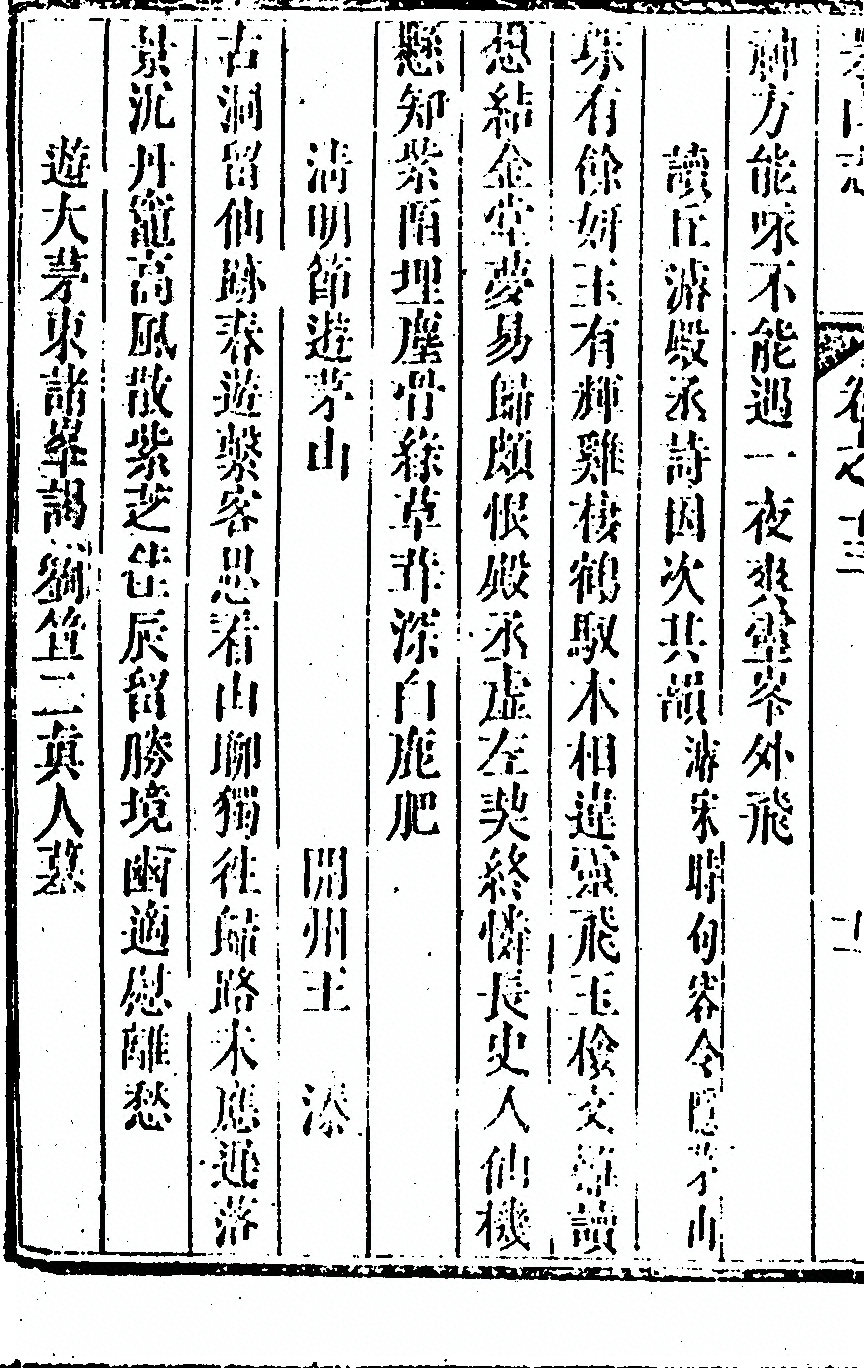 茅山志
卷之十三
神方能咏不能遏一夜爽靈岑外飛
讀丘濬殿丞詩因次其韻濬宋時句容令隱茅山
珠有餘妍玉有輝雞棲鶴馭本相違靈飛玉檢文難讀
想結金堂夢易歸頗恨殿丞虛左契終憐長史人仙機
懸知紫陌埋塵骨綠草菲深白鹿肥
清明節遊茅山 開州王 添
古洞留仙跡春遊繫客思看山聊獨徃歸路未應遲落
景沉丹竈高風散紫芝佳辰留勝境幽適慰離愁
遊大茅東諸峯謁劉笪二真人墓